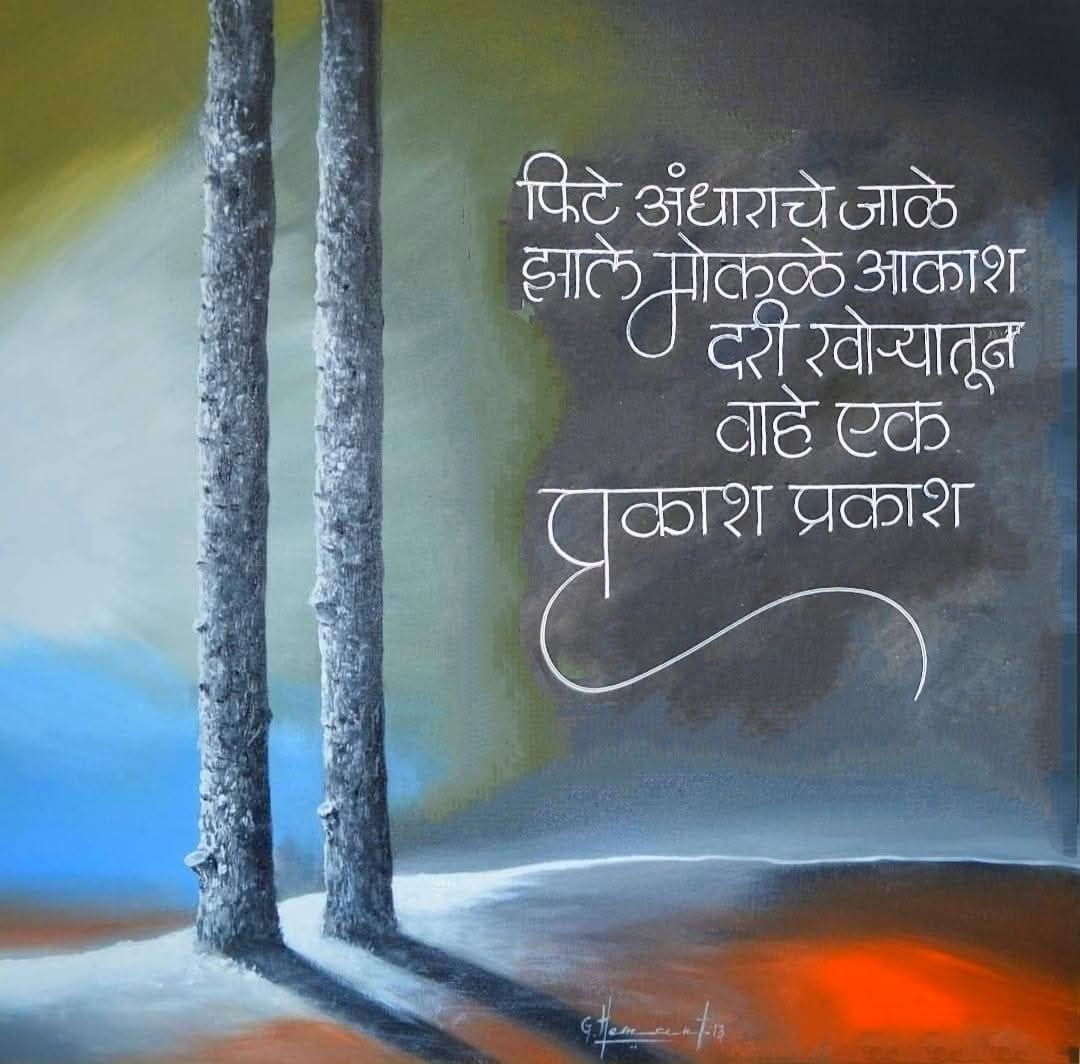 फिटे अंधाराचे जाळे
झाले मोकळे आकाश
दरी खोऱ्यातून
वाहे एक
प्रकाश प्रकाश
G. Hemant.13